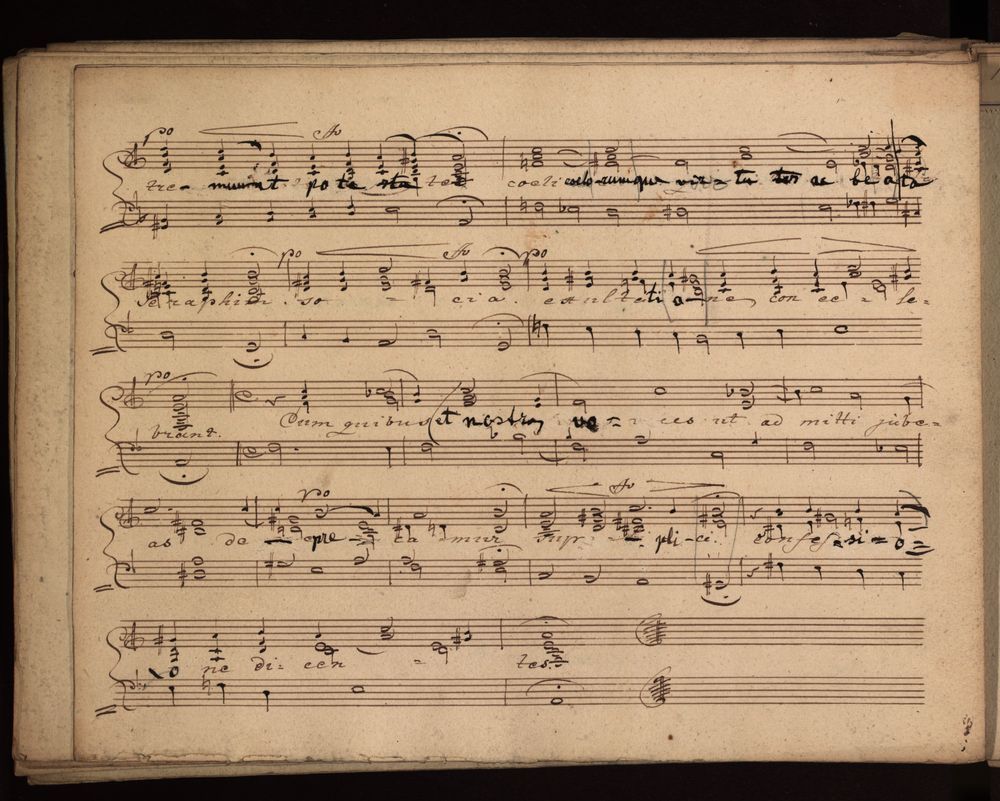 po
tre- munt po te sta tes coeli coelorumque vir- tu tes ac be ata
po po
Seraphim so - cia. exulta ti o- ne con ce - le-
po
brant. Cum quibus et nostras vo = ces ut ad mitti jube=
po
as de- pre- ca mur sup- pli- ci confes-si= o=
o ne di- cen - tes.